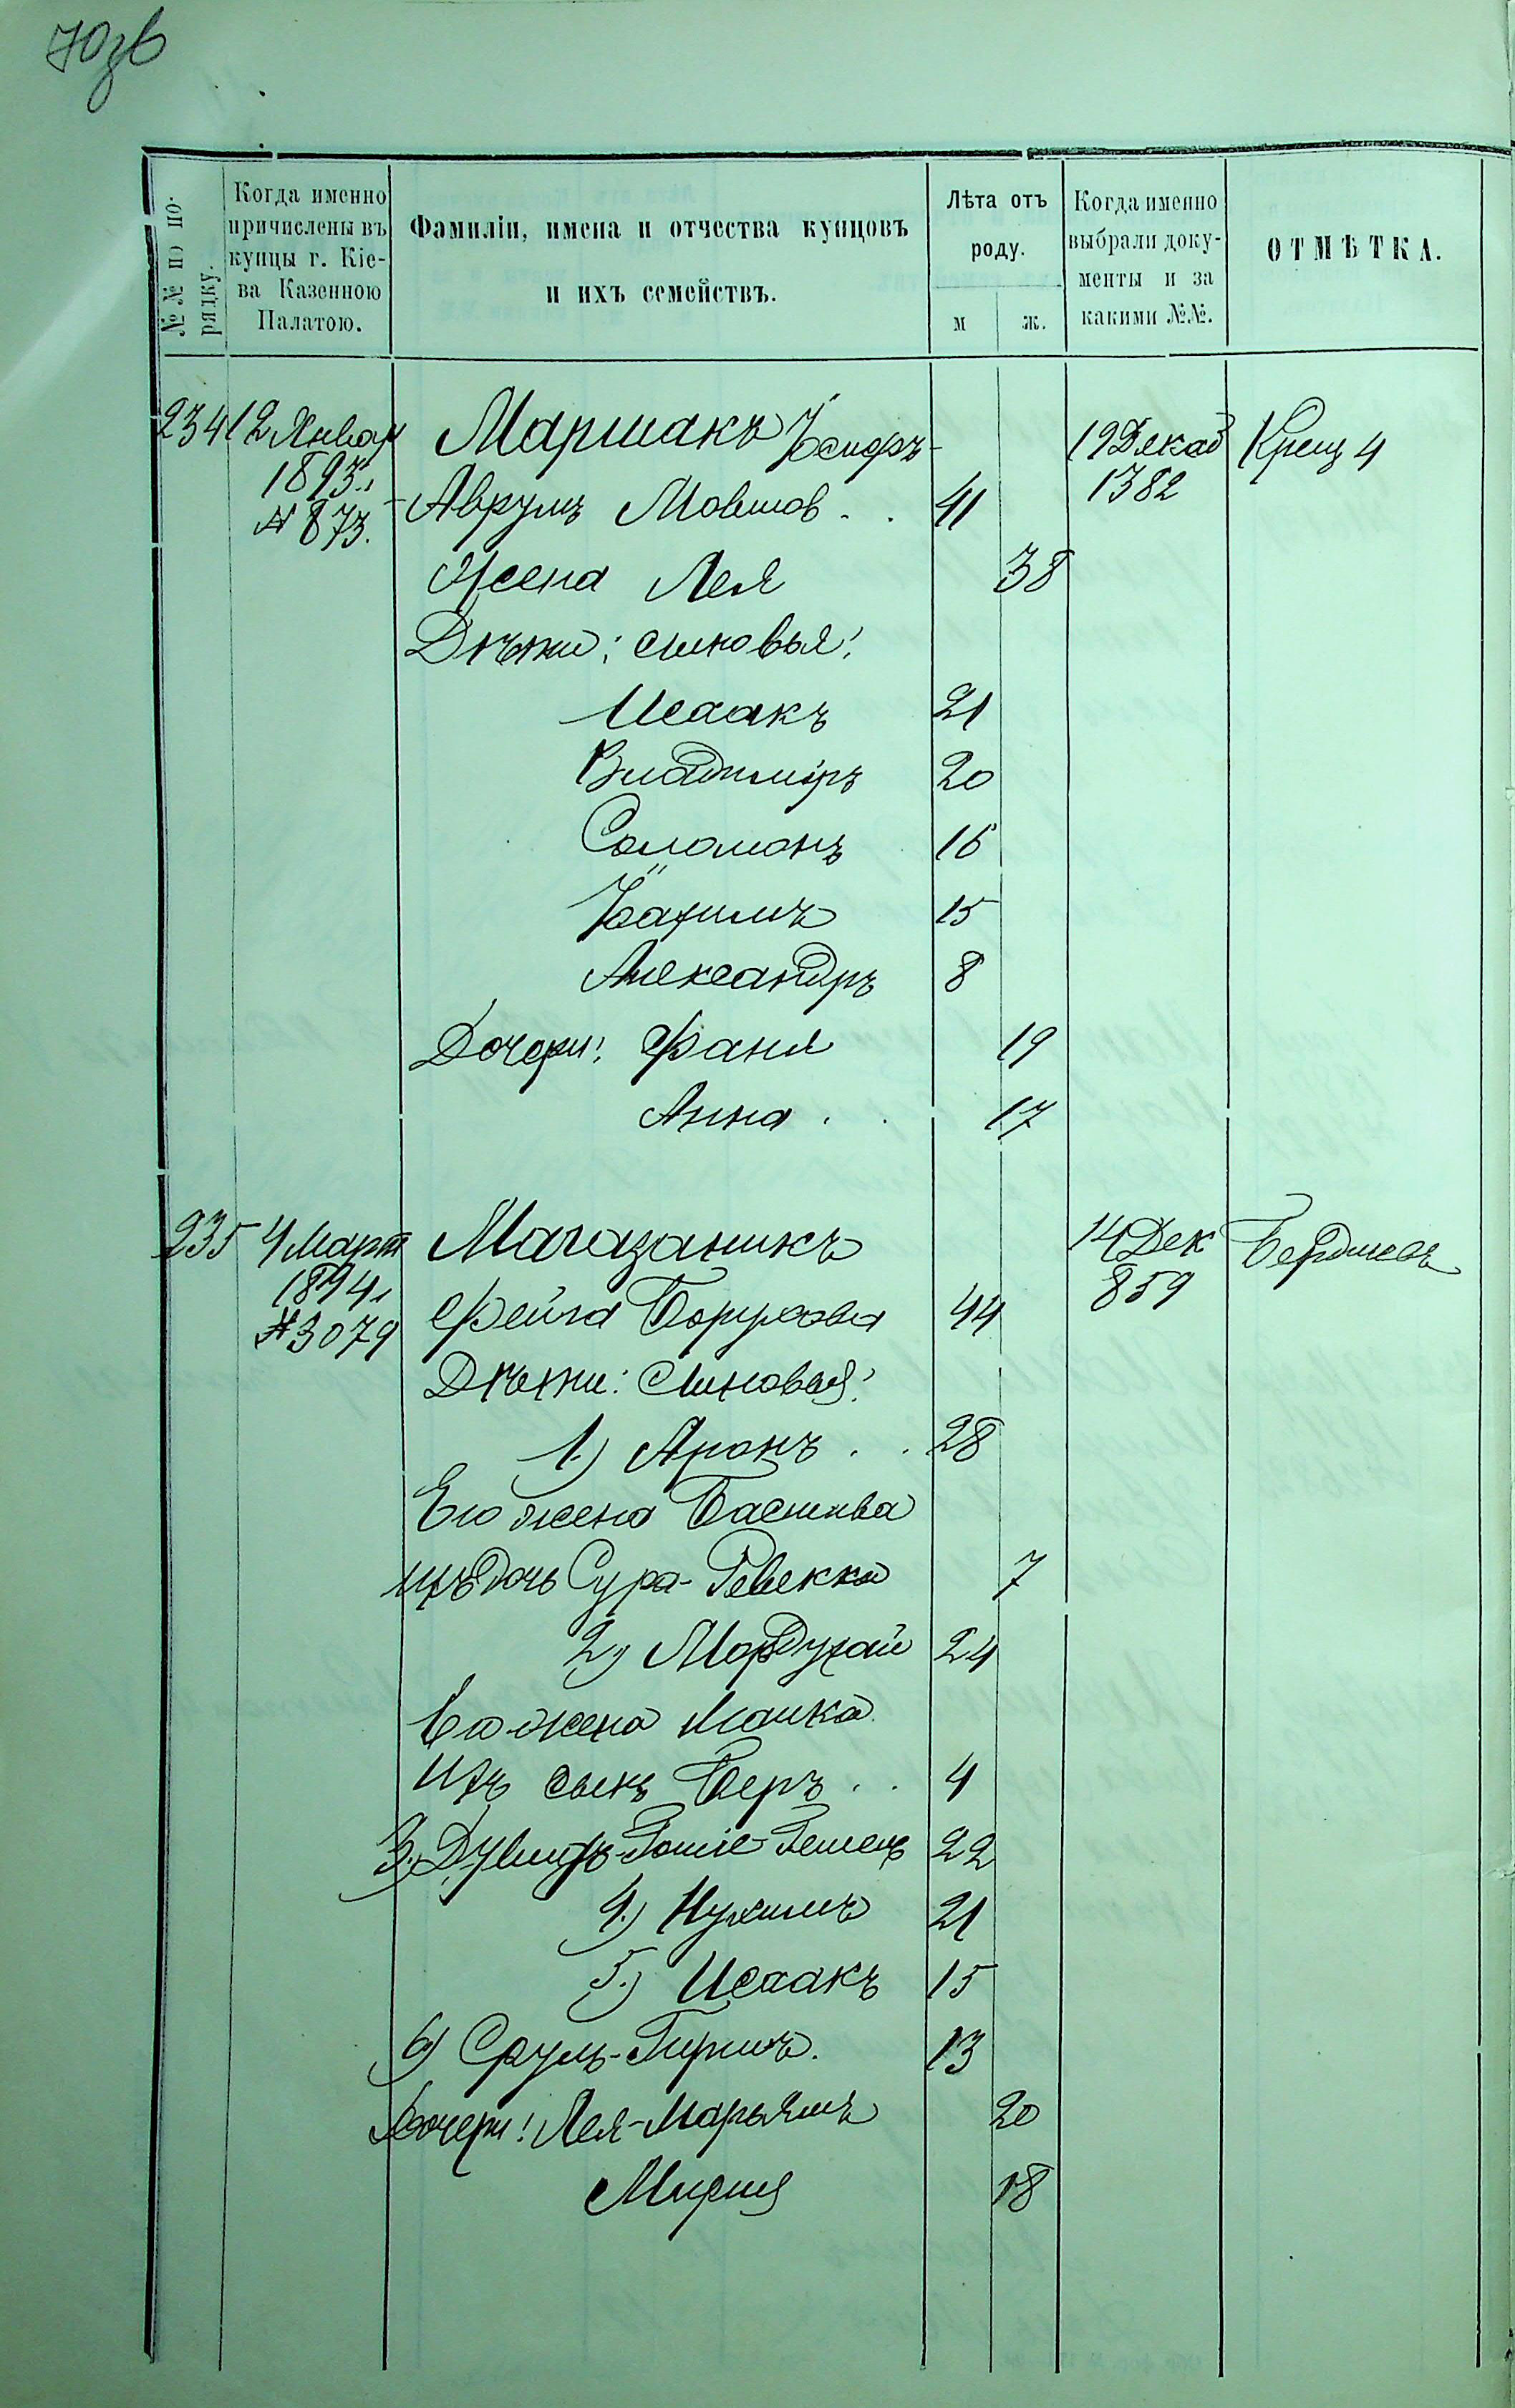 70зв
№№ по порядку.
Когда именно причислены въ купцы г. Кіева Казенною Палатою.
Фамиліи, имена и отчества купцовъ и ихъ семействъ.
Лѣта отъ роду.
м ж.
Когда именно выбрали документы и за какими №№.
ОТМѢТКА.
234 12 Январ Маршакъ Іосифъ- 19 Декаб Крещ 4
1893 г. № 873. Аврумъ Мовшов. 41 1382
Жена Лея 38
Дѣти: сыновья:
Исаакъ 21
Владиміръ 20
Соломонъ 16
Іоахимъ 15
Александръ 8
Дочери: Фаня 19
Анна 17
235 4 Март Магазаникъ 14 Дек Бердичевъ
1894 г. № 3079 Фейга Борухова 44 859
Дѣти: Сыновья:
1.) Аронъ 28
Его жена Басшева
ихъ дочь Сура-Ревекка 7
2) Мордухай 24
Его жена Малка
Ихъ сынъ Беръ 4
3.) Дувидъ 22
4.) Нухимъ 21
5.) Исаакъ 15
6) Сруль-Гиршъ. 13
Дочери: Лея-Марьямъ 20
Мириля 18